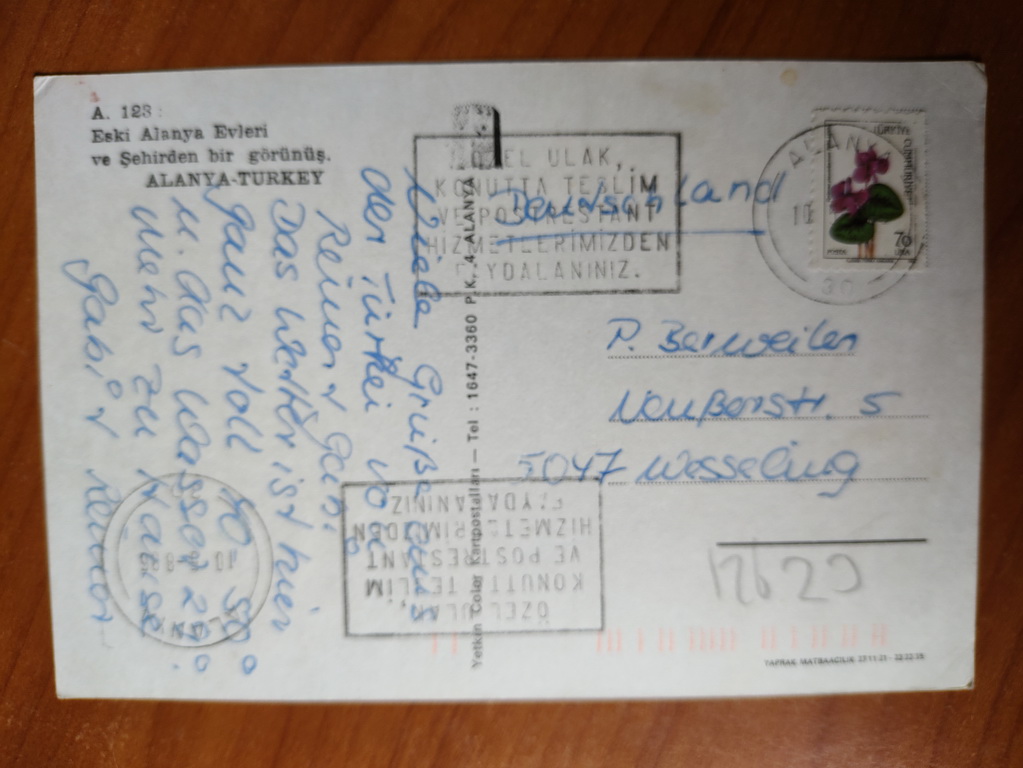 A. 123
Eski Alanya Evleri
ve Şehirden bir görünüş.
ALANYA-TURKEY
Viele Grüße aus
der Türkei
Reiner Gabi
Das Wetter ist hier
ganz toll 40-50°
u. das Wasser 29°.
Mehr zu Hause
Gabi + Reiner
Yetkin Color Kartpostalları — Tel : 1647-3360 P. K. 4 ALANYA
ÖZEL ULAK,
KONUTTA TESLİM
VE POSTRESTANT
HİZMETLERİMİZDEN
FAYDALANINIZ.
ALANYA
10
TÜRKİYE CUMHURİYETİ
70
LİRA
Deutschland
P. Berweiler
5
5047 Wesseling
12629
ÖZEL ULAK,
KONUTTA TESLİM
VE POSTRESTANT
HİZMETLERİMİZDEN
FAYDALANINIZ
10
YAPRAK MATBAACILIK